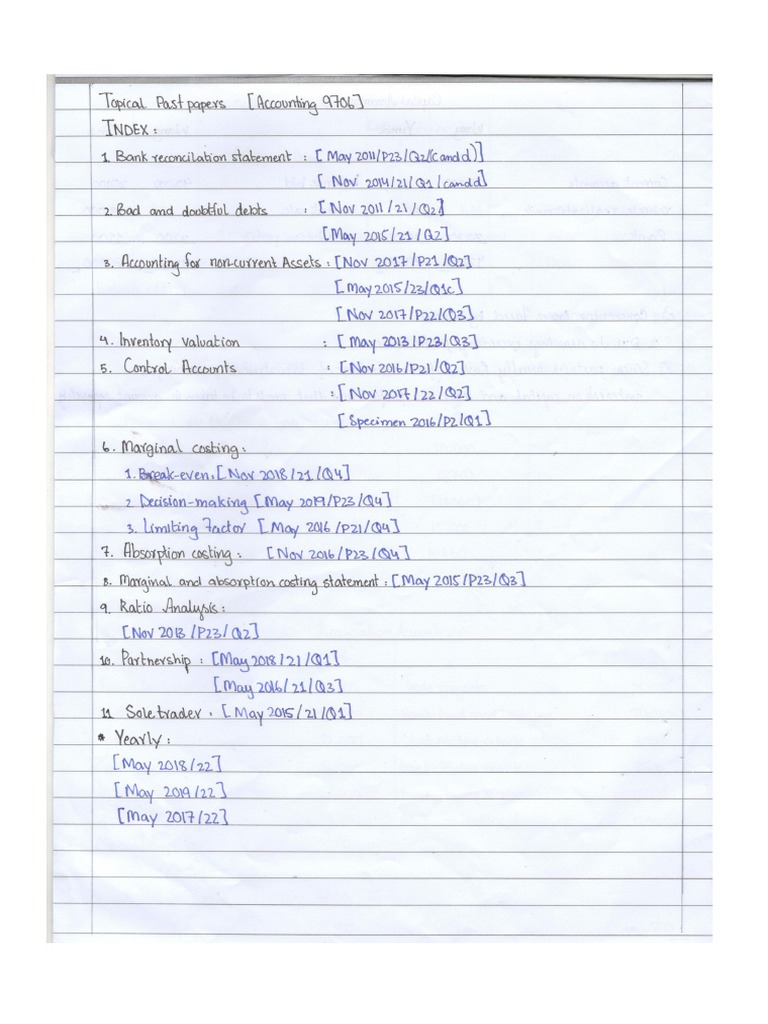 Topical Past papers [Accounting 9706]
INDEX:
1. Bank reconcilation statement : [May 2011/P23/Q2/(c and d)]
[Nov 2014/21/Q1/c and d]
2. Bad and doubtful debts : [Nov 2011/21/Q2]
[May 2015/21/Q2]
3. Accounting for non-current Assets : [Nov 2017/P21/Q2]
[May 2015/23/Q1c]
[Nov 2017/P22/Q3]
4. Inventory valuation : [May 2013/P23/Q3]
5. Control Accounts : [Nov 2016/P21/Q2]
: [Nov 2017/22/Q2]
[Specimen 2016/P2/Q1]
6. Marginal costing:
1. Break-even: [Nov 2018/21/Q4]
2. Decision-making [May 2019/P23/Q4]
3. Limiting Factor [May 2016/P21/Q4]
7. Absorption costing: [Nov 2016/P23/Q4]
8. Marginal and absorption costing statement: [May 2015/P23/Q3]
9. Ratio Analysis:
[Nov 2013/P23/Q2]
10. Partnership : [May 2018/21/Q1]
[May 2016/21/Q3]
11. Sole trader. [May 2015/21/Q1]
* Yearly:
[May 2018/22]
[May 2019/22]
[May 2017/22]